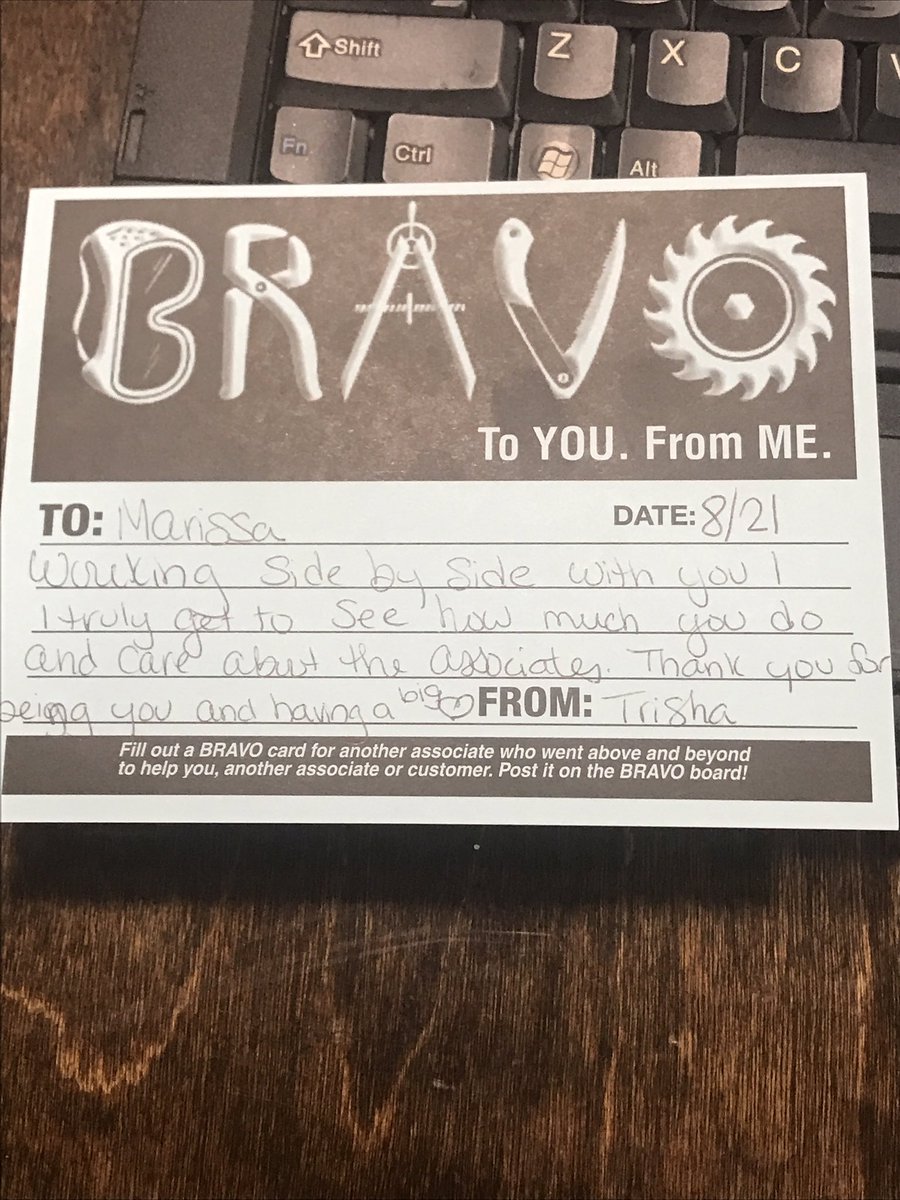 Shift Z X C
Fn Ctrl Alt
BRAVO
To YOU. From ME.
TO: Marissa DATE: 8/21
Working side by side with you I
I truly get to see how much you do
and care about the associates. Thank you for
being you and having a big ♡ FROM: Trisha
Fill out a BRAVO card for another associate who went above and beyond
to help you, another associate or customer. Post it on the BRAVO board!